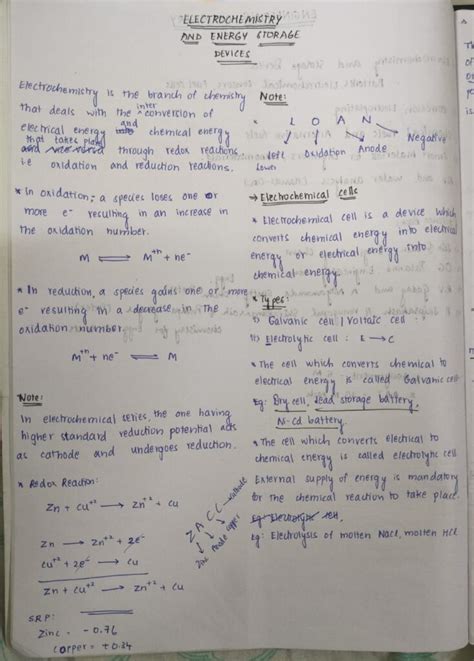 ELECTROCHEMISTRY
AND ENERGY STORAGE
DEVICES
Electrochemistry is the branch of chemistry
that deals with the interconversion of
electrical energy and chemical energy
that takes place through redox reactions
i.e oxidation and reduction reactions.
* In oxidation, a species loses one or
more e⁻ resulting in an increase in
the oxidation number.
M ⇌ M⁺ⁿ + ne⁻
* In reduction, a species gains one or more
e⁻ resulting in a decrease in the
oxidation number.
M⁺ⁿ + ne⁻ ⇌ M
Note:
In electrochemical series, the one having
higher standard reduction potential acts
as cathode and undergoes reduction.
* Redox Reaction:
Zn + Cu⁺² → Zn⁺² + Cu
Zn → Zn⁺² + 2e⁻
Cu⁺² + 2e⁻ → Cu
Zn + Cu⁺² → Zn⁺² + Cu
S.R.P:
Zinc = -0.76
Copper = +0.34
ZACC
Zinc Anode Copper Cathode
Note:
L O A N
Left Oxidation Anode Negative
Lower
→ Electrochemical cells
* Electrochemical cell is a device which
converts chemical energy into electrical
energy or electrical energy into
chemical energy
* Types:
i) Galvanic cell / Voltaic cell
ii) Electrolytic cell : E → C
* The cell which converts chemical to
electrical energy is called Galvanic cell
Eg: Dry cell, lead storage battery,
Ni-Cd battery.
* The cell which converts electrical to
chemical energy is called electrolytic cell
External supply of energy is mandatory
for the chemical reaction to take place.
Eg: Electrolysis of molten NaCl, molten HCl